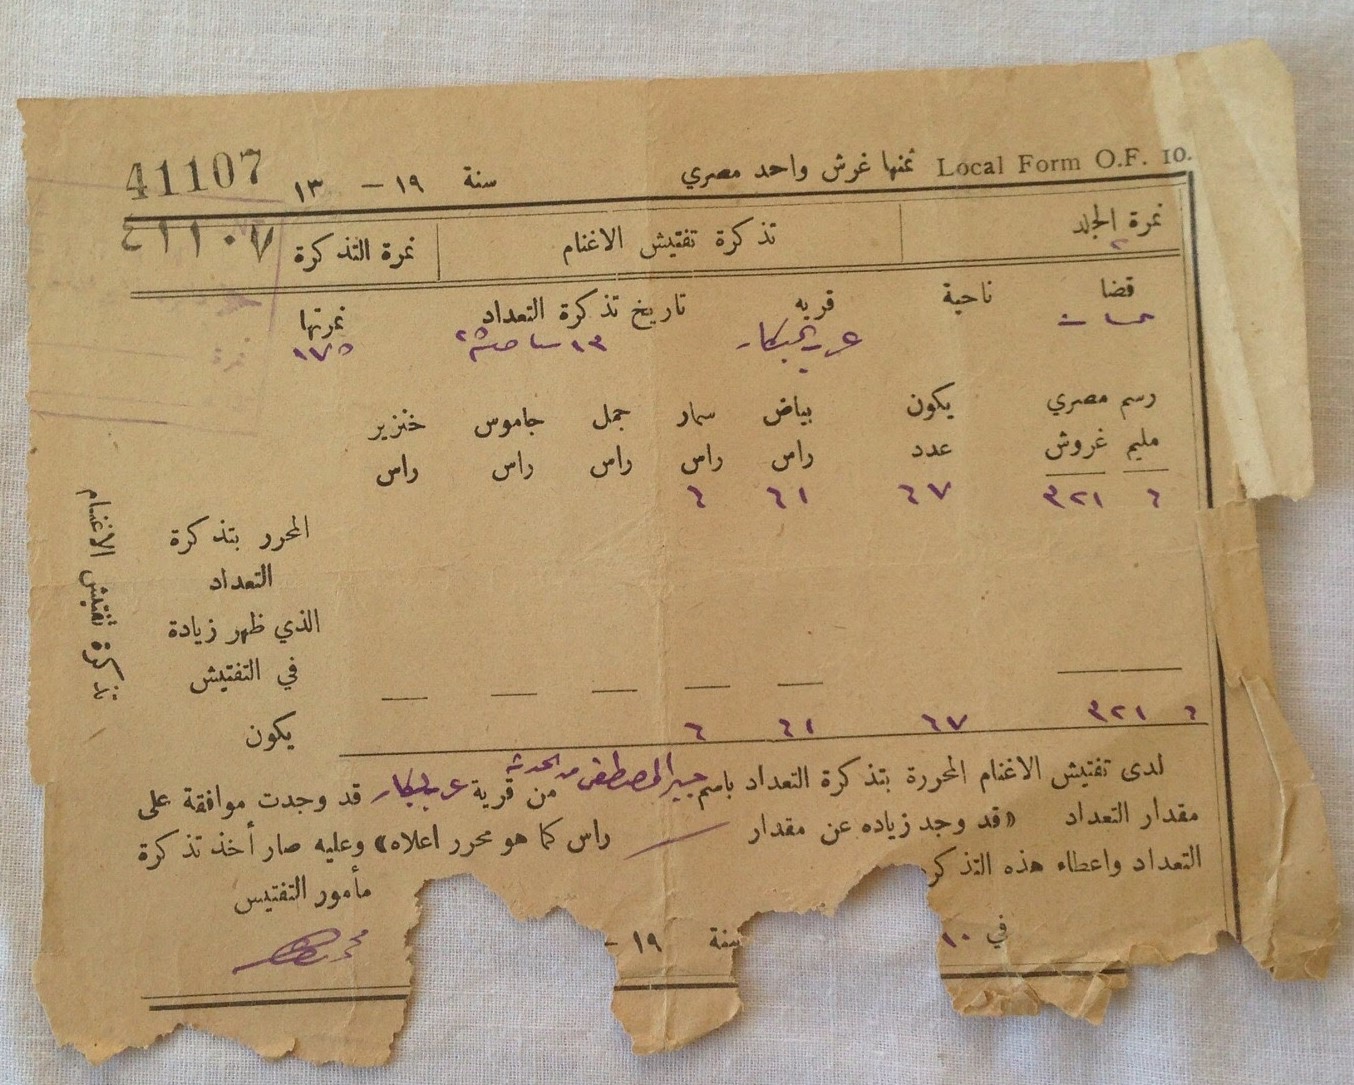 Local Form O.F. 10. ثمنها غرش واحد مصري سنة ١٩ – ١٣ 41107
نمرة الجلد تذكرة تفتيش الاغنام نمرة التذكرة ٤١١٠٧
٢
قضا ناحية قريه تاريخ تذكرة التعداد نمرتها
١٣ ٢٥ ١٧٥
رسم مصري يكون بياض سمار جمل جاموس خنزير
مليم غروش عدد راس راس راس راس راس
٦ ٣٢١ ٦٧ ٦١ ٦
المحرر بتذكرة
التعداد
الذي ظهر زيادة
في التفتيش
٦ ٣٢١ ٦٧ ٦١ ٦ يكون
لدى تفتيش الاغنام المحررة بتذكرة التعداد باسم المصطفى من قرية قد وجدت موافقة على
مقدار التعداد «قد وجد زياده عن مقدار راس كما هو محرر اعلاه» وعليه صار أخذ تذكرة
التعداد واعطاء هذه التذكر
مأمور التفتيس
في ١٠ سنة ١٩ –
تذكرة تفتيش الاغنام